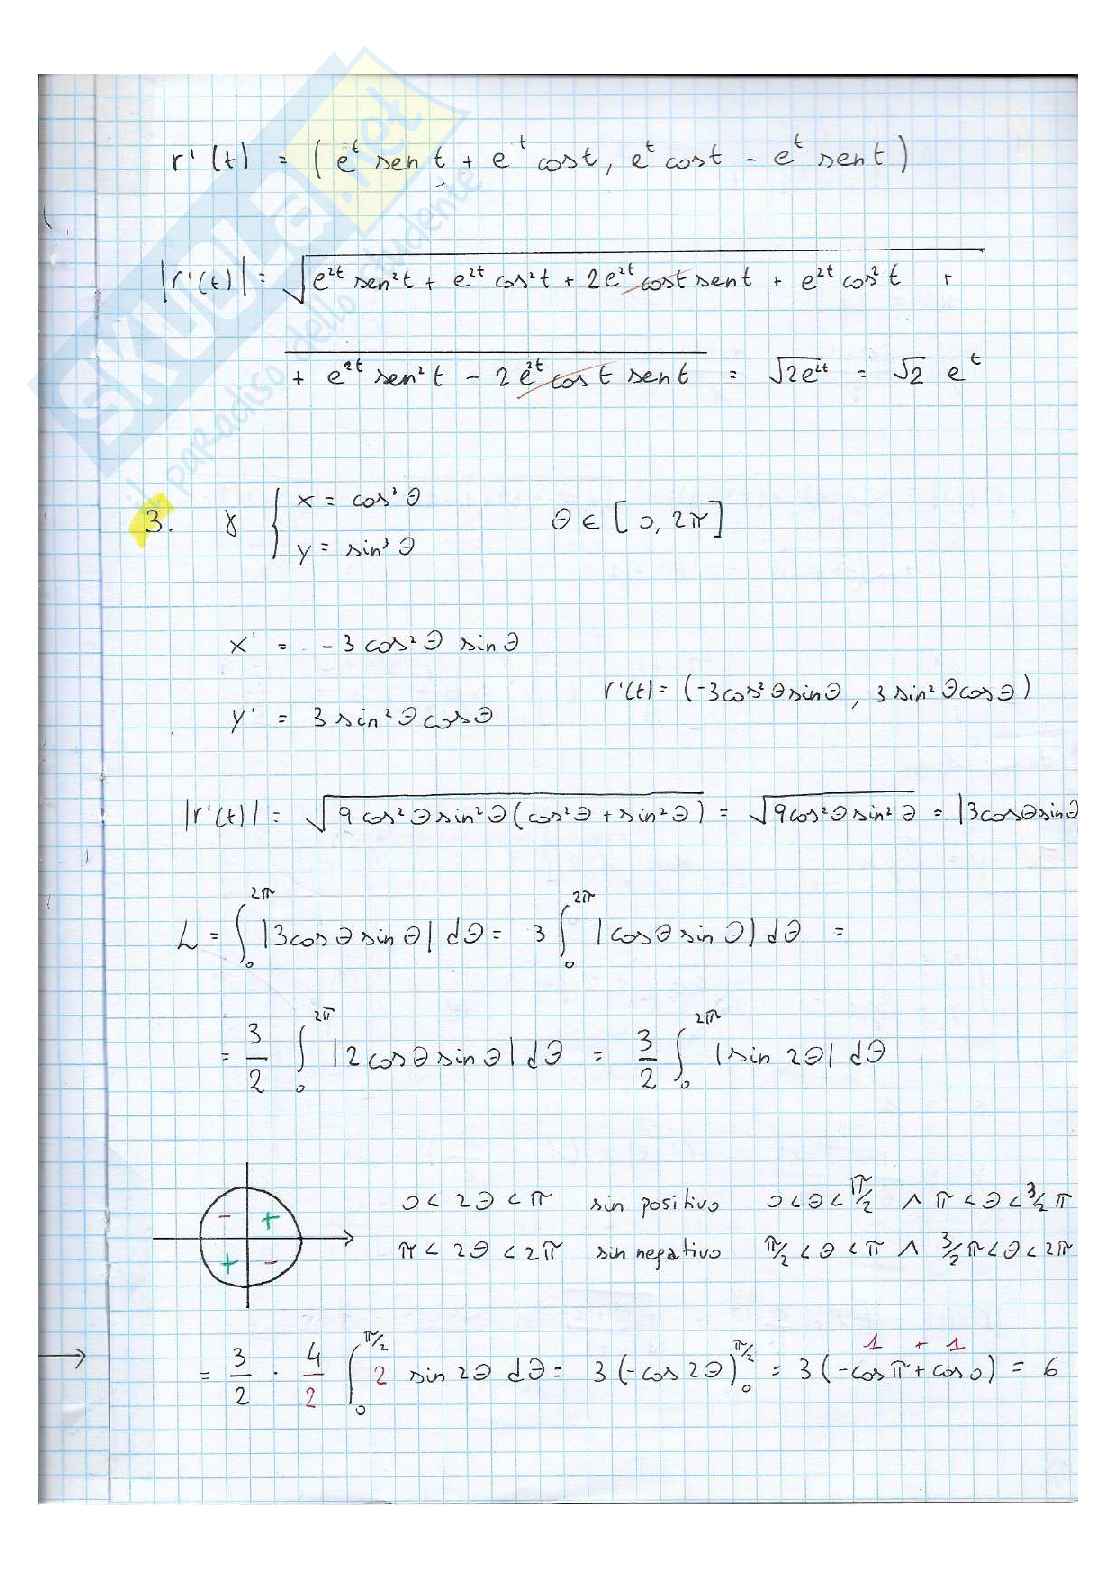 SKUOLA.net
il paradiso dello studente
r'(t) = (e^t sen t + e^t cos t, e^t cos t - e^t sen t)
|r'(t)| = √(e^2t sen²t + e^2t cos²t + 2e^2t cos t sen t + e^2t cos²t +
+ e^2t sen²t - 2e^2t cos t sen t) = √2e^2t = √2 e^t
3. γ { x = cos³θ
y = sin³θ θ ∈ [0, 2π]
x' = -3 cos²θ sinθ
r'(t) = (-3cos²θ sinθ, 3 sin²θ cosθ)
y' = 3 sin²θ cosθ
|r'(t)| = √(9cos²θ sin²θ (cos²θ + sin²θ)) = √(9cos²θ sin²θ) = |3cosθ sinθ
L = ∫₀^2π |3cosθ sinθ| dθ = 3 ∫₀^2π |cosθ sinθ| dθ =
= 3/2 ∫₀^2π |2cosθ sinθ| dθ = 3/2 ∫₀^2π |sin 2θ| dθ
- + 0 < 2θ < π sin positivo 0 < θ < π/2 ∧ π < θ < 3/2 π
+ - π < 2θ < 2π sin negativo π/2 < θ < π ∧ 3/2 π < θ < 2π
1 + 1
→ = 3/2 · 4/2 ∫₀^π/2 2 sin 2θ dθ = 3 (-cos 2θ)₀^π/2 = 3 (-cos π + cos 0) = 6